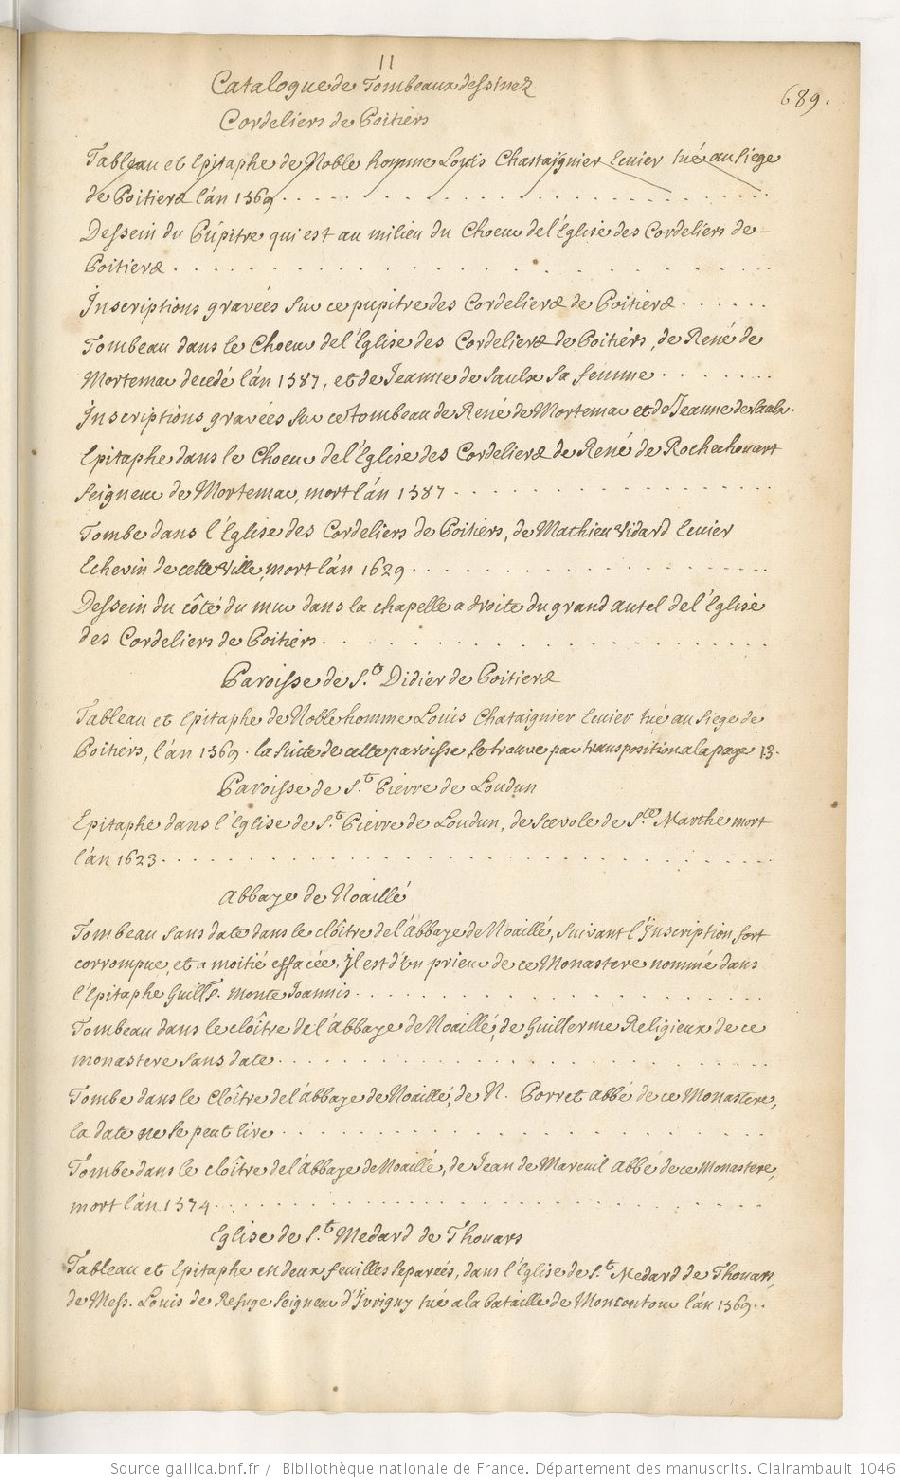 11
Catalogue de Tombeaux dessinez
689.
Cordeliers de Poitiers
Tableau et Epitaphe de Noble homme Louis Chastaignier Ecuier tué au siege
de Poitiers l'an 1569
Dessein du Pupitre qui est au milieu du Choeur de l'Eglise des Cordeliers de
Poitiers
Inscriptions gravées sur ce pupitre des Cordeliers de Poitiers
Tombeau dans le Choeur de l'Eglise des Cordeliers de Poitiers, de René de
Mortemar decedé l'an 1587, et de Jeanne de Saulx sa femme
Inscriptions gravées sur ce tombeau de René de Mortemar et de Jeanne de Saulx.
Epitaphe dans le Choeur de l'Eglise des Cordeliers de René de Rochechouart
Seigneur de Mortemar, mort l'an 1587
Tombe dans l'Eglise des Cordeliers de Poitiers, de Mathieu Vidard Ecuier
Echevin de cette Ville, mort l'an 1629
Dessein du côté du mur dans la chapelle a droite du grand autel de l'Eglise
des Cordeliers de Poitiers
Paroisse de S.t Didier de Poitiers
Tableau et Epitaphe de Noble homme Louis Chataignier Ecuier tué au siege de
Poitiers, l'an 1569. la suite de cette paroisse se trouve par transposition a la page 13.
Paroisse de S.t Pierre de Loudun
Epitaphe dans l'Eglise de S.t Pierre de Loudun, de Scevole de S.te Marthe mort
l'an 1623
Abbaye de Noaillé
Tombeau sans date dans le cloître de l'Abbaye de Noaillé, suivant l'Inscription fort
corrompue, et a moitié effacée. Il est d'un prieur de ce Monastere nommé dans
l'Epitaphe Guill.s. Monte Joannis
Tombeau dans le cloître de l'Abbaye de Noaillé, de Guillerme Religieux de ce
monastere sans date
Tombe dans le Cloître de l'abbaye de Noaillé, de N. Porret abbé de ce Monastere,
la date ne se peut lire
Tombe dans le cloître de l'Abbaye de Noaillé, de Jean de Mareuil Abbé de ce Monastere,
mort l'an 1574
Eglise de S.t Medard de Thouars
Tableau et Epitaphe en deux feuilles separées, dans l'Eglise de S.t Medard de Thouars,
de Mess. Louis de Refuge Seigneur d'Ivrigny tué a la bataille de Moncontour l'an 1569.
Source gallica.bnf.fr / Bibliothèque nationale de France. Département des manuscrits. Clairambault 1046